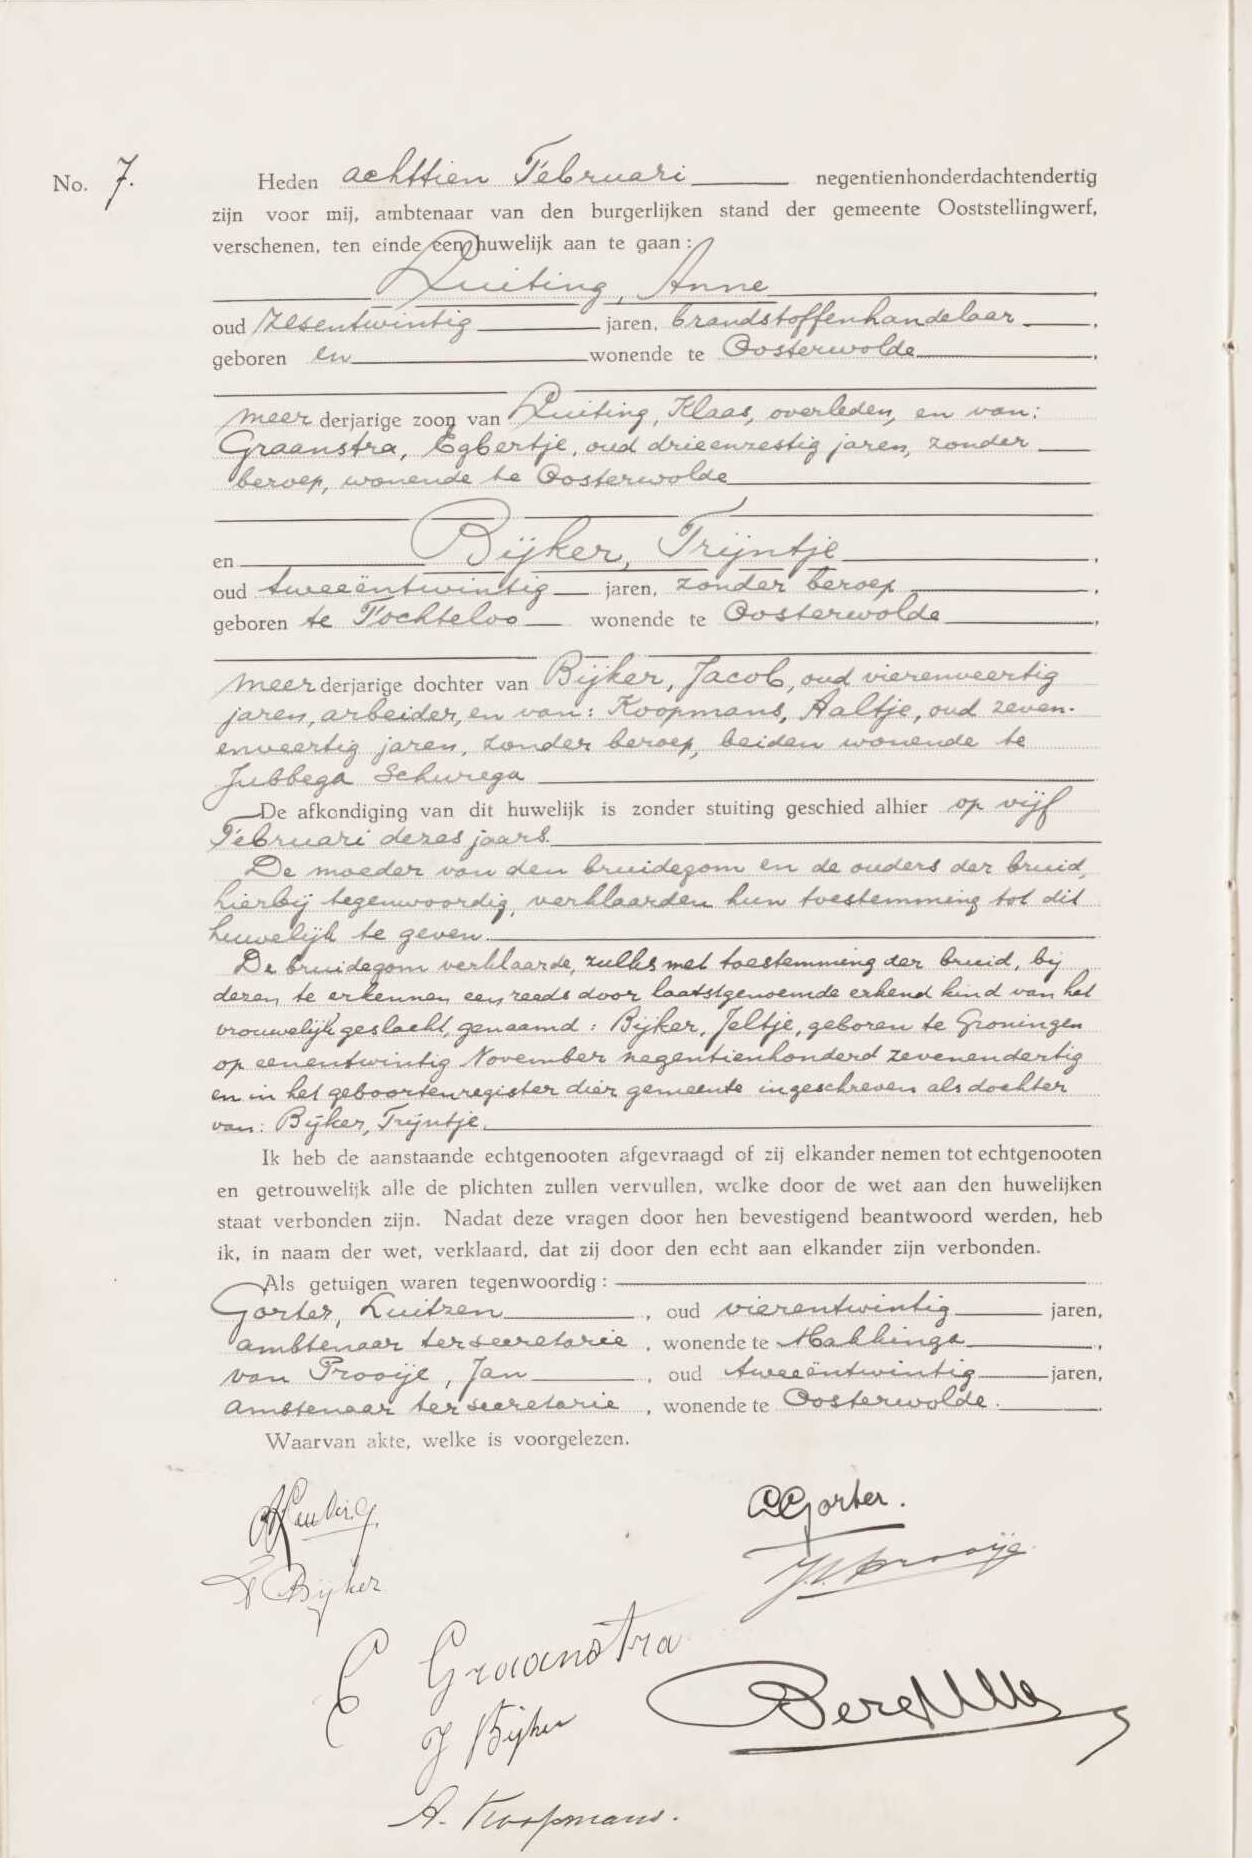 No. 7.
Heden achttien Februari negentienhonderdachtendertig
zijn voor mij, ambtenaar van den burgerlijken stand der gemeente Ooststellingwerf,
verschenen, ten einde een huwelijk aan te gaan :
Luiting, Anne,
oud zesentwintig jaren, brandstoffenhandelaar,
geboren en wonende te Oosterwolde,
meer derjarige zoon van Luiting, Klaas, overleden, en van:
Graanstra, Egbertje, oud drieenzestig jaren, zonder
beroep, wonende te Oosterwolde
en Bijker, Trijntje,
oud tweeëntwintig jaren, zonder beroep,
geboren te Fochteloo wonende te Oosterwolde,
meer derjarige dochter van Bijker, Jacob, oud vierenveertig
jaren, arbeider, en van: Koopmans, Aaltje, oud zeven-
enveertig jaren, zonder beroep, beiden wonende te
Jubbega Schurega
De afkondiging van dit huwelijk is zonder stuiting geschied alhier op vijf
Februari dezes jaars.
De moeder van den bruidegom en de ouders der bruid,
hierbij tegenwoordig, verklaarden hun toestemming tot dit
huwelijk te geven.
De bruidegom verklaarde, zulks met toestemming der bruid, bij
dezen te erkennen een reeds door laatstgenoemde erkend kind van het
vrouwelijk geslacht, genaamd : Bijker, Jeltje, geboren te Groningen
op eenentwintig November negentienhonderd zevenendertig
en in het geboortenregister dier gemeente ingeschreven als dochter
van: Bijker, Trijntje.
Ik heb de aanstaande echtgenooten afgevraagd of zij elkander nemen tot echtgenooten
en getrouwelijk alle de plichten zullen vervullen, welke door de wet aan den huwelijken
staat verbonden zijn. Nadat deze vragen door hen bevestigend beantwoord werden, heb
ik, in naam der wet, verklaard, dat zij door den echt aan elkander zijn verbonden.
Als getuigen waren tegenwoordig :
Gorter, Luitzen, oud vierentwintig jaren,
ambtenaar ter secretarie, wonende te Makkinga,
van Prooije, Jan, oud tweeëntwintig jaren,
ambtenaar ter secretarie, wonende te Oosterwolde.
Waarvan akte, welke is voorgelezen.
A Luiting. Gorter.
T Bijker J.v. Prooije.
E Graanstra
J Bijker
A. Koopmans.